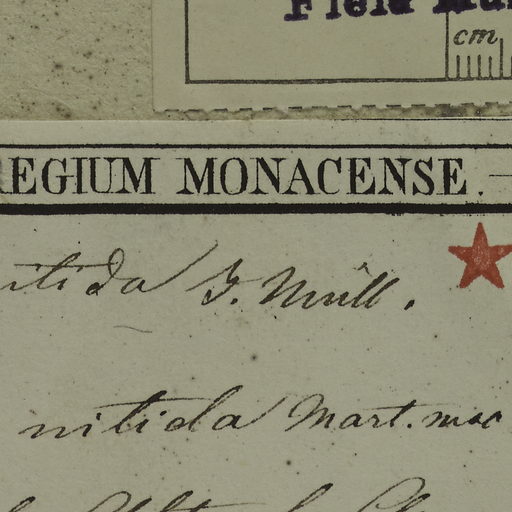 Field
cm
REGIUM MONACENSE.
nitida J. Müll.
nitida Mart. msc